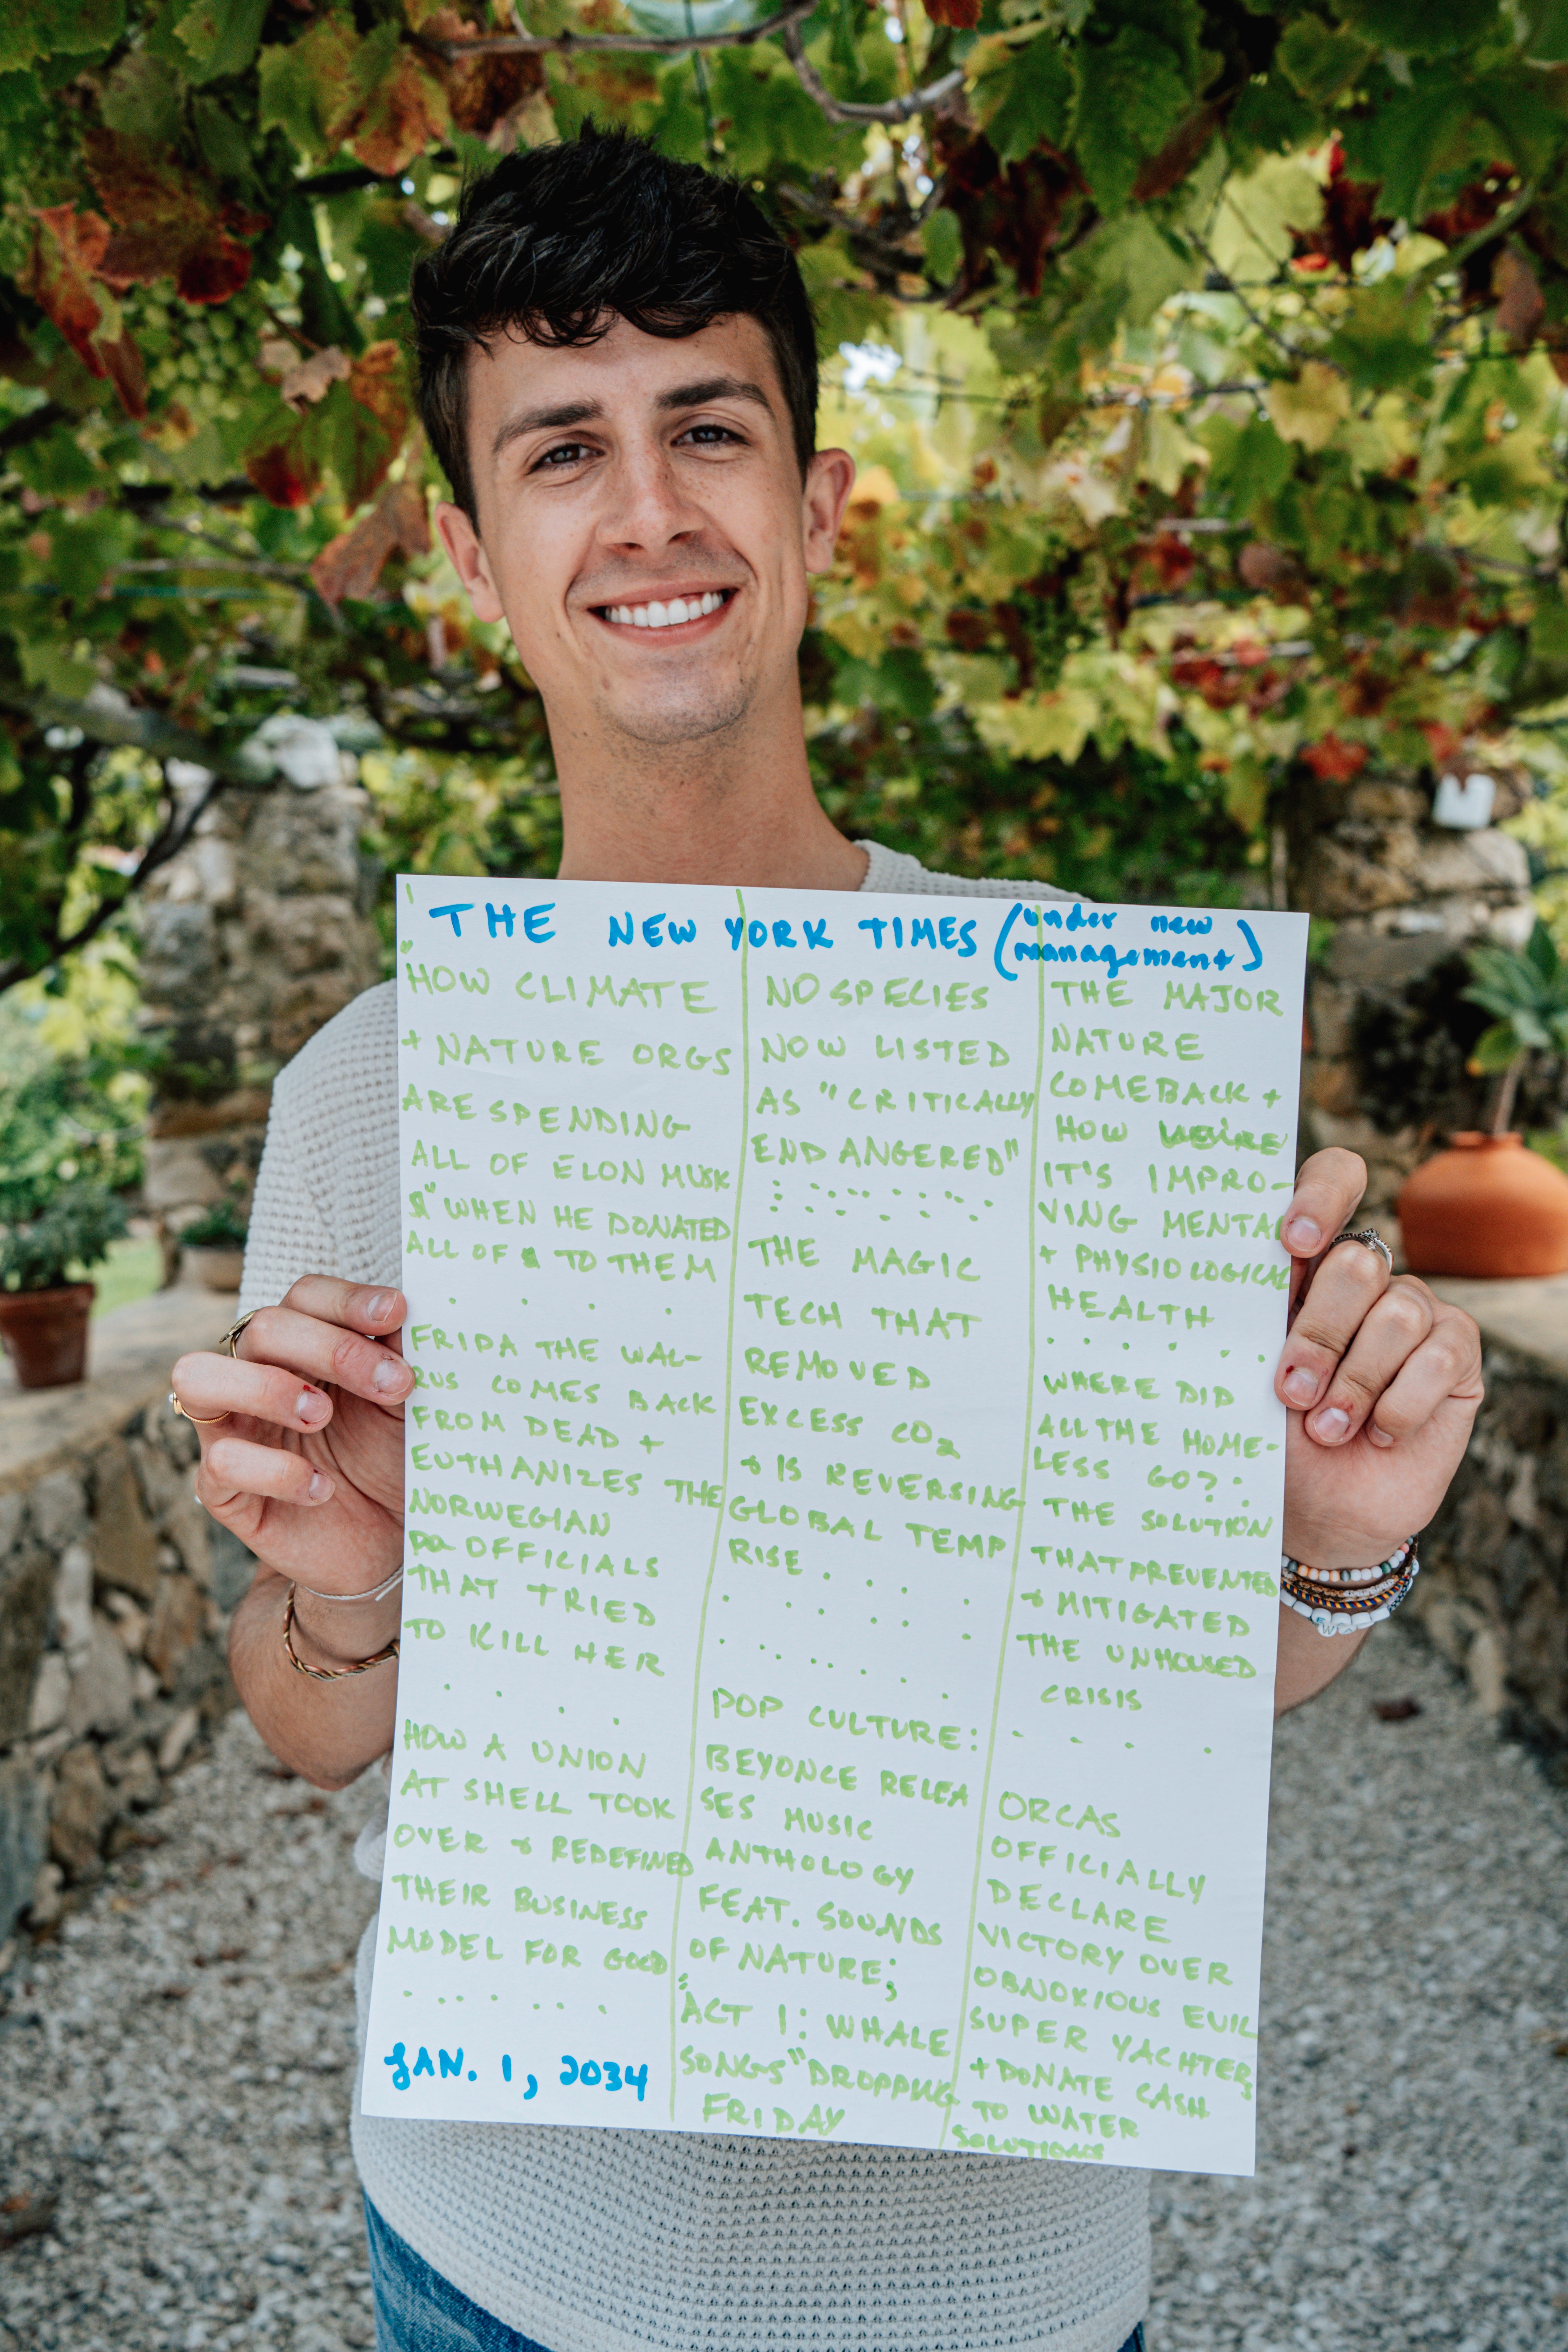 "THE NEW YORK TIMES (under new
management)
HOW CLIMATE
+ NATURE ORGS
ARE SPENDING
ALL OF ELON MUSK
$" WHEN HE DONATED
ALL OF $ TO THEM
. . . .
FRIDA THE WAL-
RUS COMES BACK
FROM DEAD +
EUTHANIZES THE
NORWEGIAN
OFFICIALS
THAT TRIED
TO KILL HER
. . . .
HOW A UNION
AT SHELL TOOK
OVER & REDEFINED
THEIR BUSINESS
MODEL FOR GOOD
. . . . . . .
JAN. 1, 2034
NO SPECIES
NOW LISTED
AS "CRITICALLY
ENDANGERED"
THE MAGIC
TECH THAT
REMOVED
EXCESS CO2
& IS REVERSING
GLOBAL TEMP
RISE . . .
POP CULTURE:
BEYONCE RELEA
SES MUSIC
ANTHOLOGY
FEAT. SOUNDS
OF NATURE;
"ACT 1: WHALE
SONGS" DROPPING
FRIDAY
THE MAJOR
NATURE
COMEBACK +
HOW
IT'S IMPRO-
VING MENTAL
+ PHYSIOLOGICAL
HEALTH
. . . . . .
WHERE DID
ALL THE HOME-
LESS GO?:
THE SOLUTION
THAT PREVENTED
& MITIGATED
THE UNHOUSED
CRISIS
. . . .
ORCAS
OFFICIALLY
DECLARE
VICTORY OVER
OBNOXIOUS EVIL
SUPER YACHTERS
+ DONATE CASH
TO WATER
SOLUTIONS